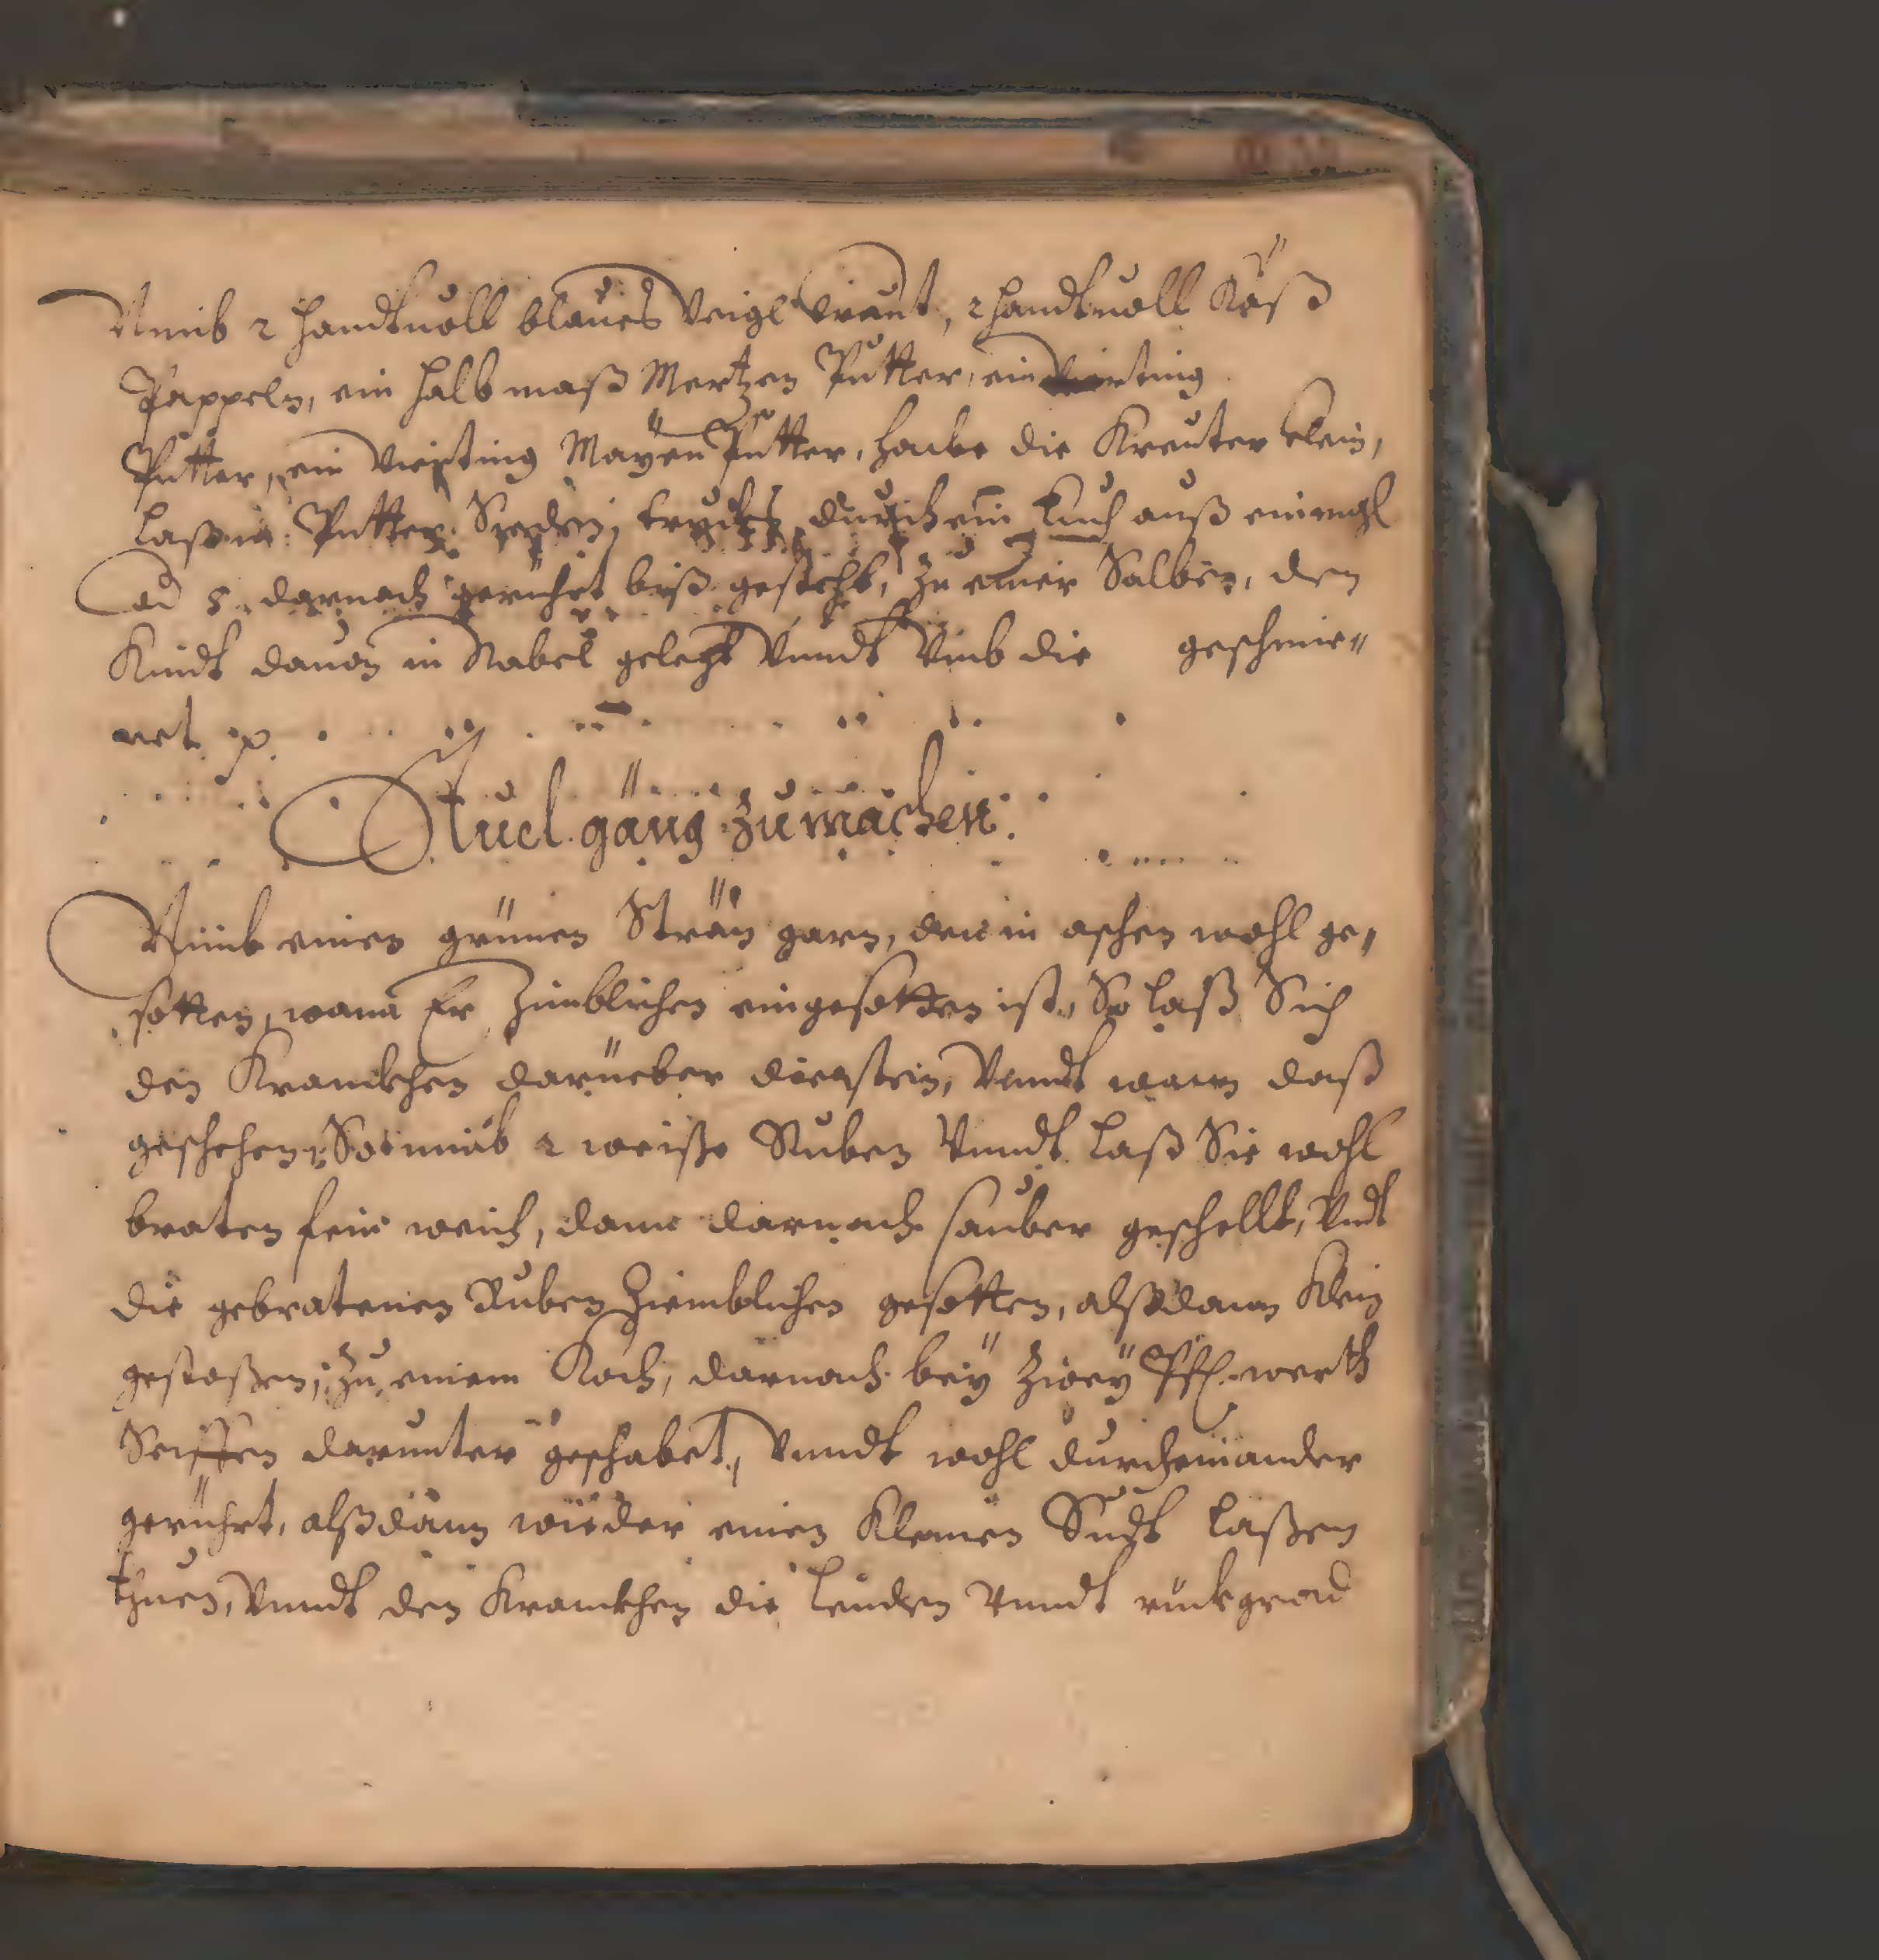 Nimb 2 handtuoll blaues Veigl kraut, 2 handtuoll Käß
Pappeln, ein halb maß Mertzen Putter, ein Vierting
Putter, ein Vierting Mayen Putter, hacke die Kreuter klein,
laß in Putter Sieden, truckhs durch ein tuch auß einmahl
od 8. darnach gerührt biß gesteht, zu einer Salben, den
Kindt dauon in Nabel gelegt Vnndt Vmb die geschmie-
ret p.
Stuel gäng zu machen.
Nimb einen grünen Strän garn, den in aschen wohl ge-
sotten, wann Er Zimblichen eingesotten ist, So laß Sich
den Kranckhen darüeber dienstein, Vnndt wann daß
geschehen, So nimb 2 weiße Ruben Vnndt laß Sie wohl
braten fein weich, dann darnach sauber geschellt, Vndt
die gebratenen Ruben Ziemblichen gesotten, alßdann Klein
gestoßen, zu einem Koch, darnach bey Zwey Pf. werth
Seiffen darunter geschabet, Vnndt wohl durcheinander
gerührt, alßdann wieder einen Kleinen Sudt laßen
thuen, Vnndt den Kranckhen die Lenden Vnndt ruckgrad